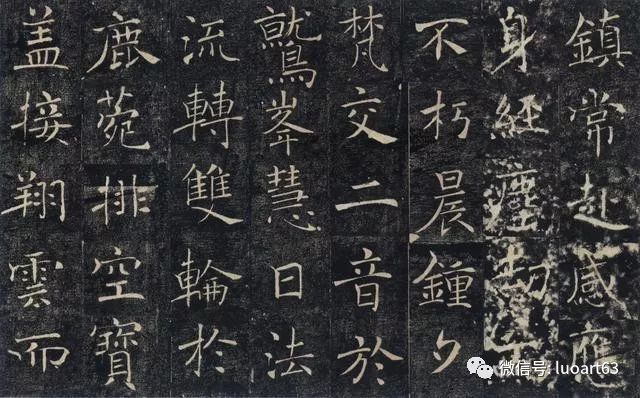 鎮常赴感應
身經塵劫而
不朽晨鍾夕
梵交二音於
鷲峯慧日法
流轉雙輪於
鹿菀排空寶
盖接翔雲而
微信号: luoart63